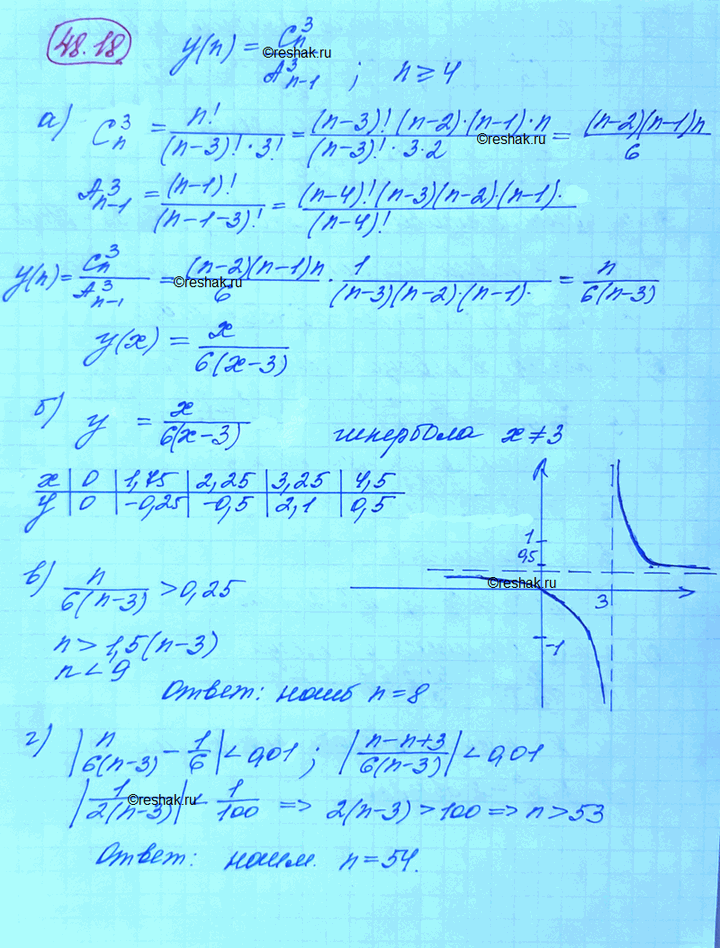 48.18 y(n) = C_n^3 / A_{n-1}^3 ; n ≥ 4
©reshak.ru
а) C_n^3 = n! / ((n-3)!·3!) = (n-3)!(n-2)·(n-1)·n / ((n-3)!·3·2) = (n-2)(n-1)n / 6
©reshak.ru
A_{n-1}^3 = (n-1)! / (n-1-3)! = (n-4)!(n-3)(n-2)(n-1)· / (n-4)!
y(n) = C_n^3 / A_{n-1}^3 = (n-2)(n-1)n / 6 · 1 / ((n-3)(n-2)·(n-1)·) = n / (6(n-3))
©reshak.ru
y(x) = x / (6(x-3))
б) y = x / (6(x-3)) гипербола x ≠ 3
x | 0 | 1,75 | 2,25 | 3,25 | 4,5
y | 0 | -0,25 | -0,5 | 2,1 | 0,5
1
0,5
©reshak.ru
3
-1
в) n / (6(n-3)) > 0,25
n > 1,5(n-3)
n < 9
Ответ: наиб n = 8
г) |n / (6(n-3)) - 1/6| < 0,01 ; |(n-n+3) / (6(n-3))| < 0,01
|1 / (2(n-3))| < 1/100 => 2(n-3) > 100 => n > 53
©reshak.ru
Ответ: наим. n = 54.